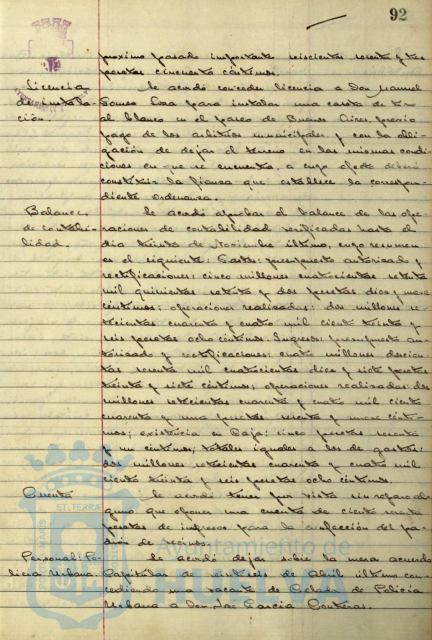 92
proximo pasado importante seiscientas sesenta y tres
pesetas cincuenta céntimos.
Licencia
de instala-
ción.
Se acordó conceder licencia a Don Manuel
Gomez para instalar una caseta de tiro
al blanco en el paseo de Buenos Aires, previo
pago de los arbitrios municipales y con la obli-
gación de dejar el terreno en las mismas condi-
ciones en que se encuentra, a cuyo efecto deberá
constituir la fianza que establece la correspon-
diente ordenanza.
Balance
de contabi-
lidad.
Se acordó aprobar el balance de las ope-
raciones de contabilidad verificadas hasta el
dia treinta de Noviembre último, cuyo resumen
es el siguiente: Gastos: presupuesto autorizado y
rectificaciones; cinco millones cuatrocientas
mil quinientas y dos pesetas y nueve
céntimos; operaciones realizadas: dos millones se-
tecientas cuarenta y cuatro mil ciento treinta y
seis pesetas ocho céntimos. Ingresos: presupuesto au-
torizado y rectificaciones: cuatro millones doscien-
tas sesenta mil cuatrocientas diez y siete pesetas
treinta y siete céntimos; operaciones realizadas: dos
millones setecientas cuarenta y cuatro mil ciento
cuarenta y una pesetas sesenta y nueve cénti-
mos; existencia en Caja: cinco pesetas sesenta
y un céntimos; totales iguales a los de gastos:
dos millones setecientas cuarenta y cuatro mil
ciento treinta y seis pesetas ocho céntimos.
Cuenta
Se acordó tener por vista sin reparo al-
guno que oponer una cuenta de ciento
pesetas de impresos para la confección del pa-
drón de vecinos.
Personal: Po-
licia Urbana.
Se acordó dejar sobre la mesa acuerdo
Capitular de veintiseis de Abril último con-
cediendo una vacante de Celador de Policia
Urbana a Don José Garcia Contreras.
Ayuntamiento de
HUELVA